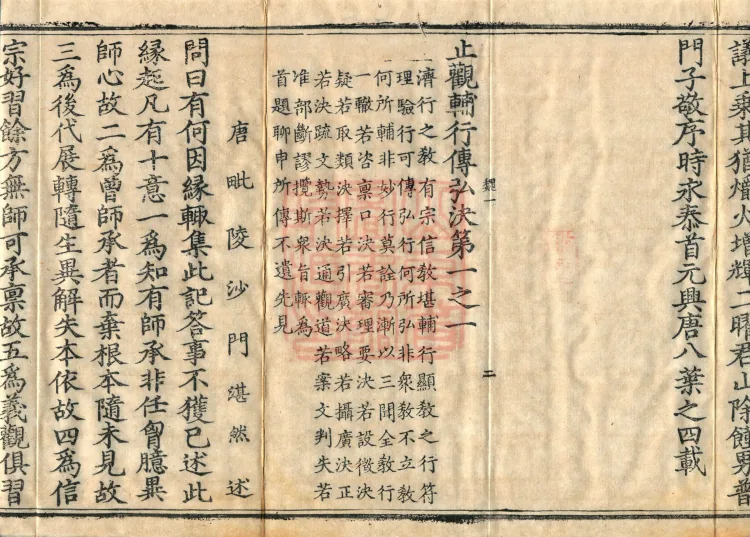 議上乘其猶爝火增輝二曜君山除饉男普
門子敬序時永泰首元興唐八葉之四載
二
止觀輔行傳弘決第一之一
濟行之教有宗信教堪輔行顯教之行符
理驗行可傳弘行何所弘非衆教不立教
何所輔非妙行莫詮乃漸以三開全教行
一轍若咨稟口決若審理要決若設徵決
疑若取類決擇若引廣決略若攝廣決正
若決疏文勢若決通觀道若案文判失若
准部斷謬攬斯衆旨輙爲
首題聊申所傳不遺先見
唐毗陵沙門湛然述
問曰有何因緣輙集此記答事不獲已述此
緣起凡有十意一爲知有師承非任胷臆異
師心故二爲曾師承者而棄根本隨末見故
三爲後代展轉隨生異解失本依故四爲信
宗好習餘方無師可承稟故五爲義觀俱習